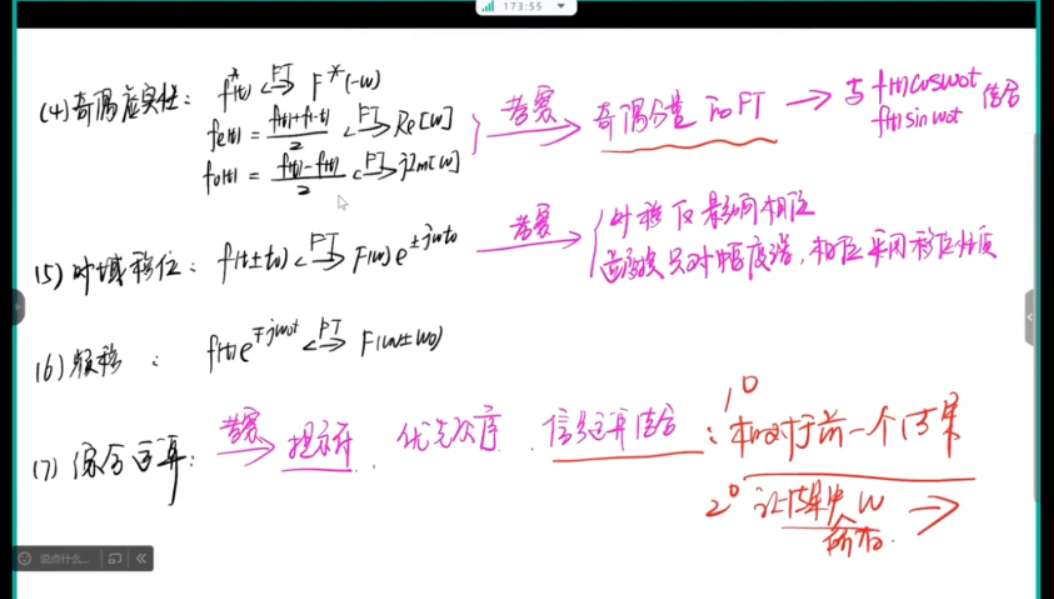 173:55
(4) 奇偶虚实性: f*(t) <FT> F*(-w)
fe(t) = f(t)+f(-t) / 2 <FT> Re[w]
fo(t) = f(t)-f(-t) / 2 <FT> jIm[w]
考察 奇偶分量的FT → 与 f(t)coswot 结合
f(t)sinwot
(5) 时域移位: f(t±to) <FT> F(w)e^±jwto
考察 时移仅影响相位
逆变换只对幅度谱,相位采用移位性质
(6) 频移: f(t)e^∓jwot <FT> F(w±wo)
(7) 综合运算: 考察 提示符, 优先次序, 信号运算结合: 1° 相对于前一个结果
2° 让结果中 w →
所有
说点什么...